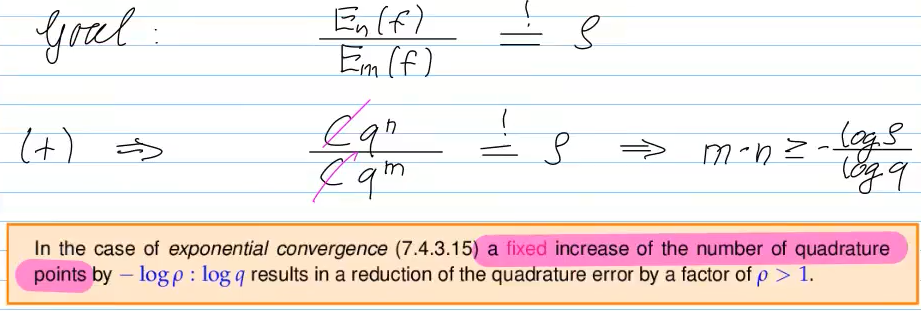 Goal : Eₙ(f) / Eₘ(f) =! ρ
(+) ⇒ C qⁿ / C qᵐ =! ρ ⇒ m-n ≥ - log ρ / log q
In the case of exponential convergence (7.4.3.15) a fixed increase of the number of quadrature
points by − log ρ : log q results in a reduction of the quadrature error by a factor of ρ > 1.